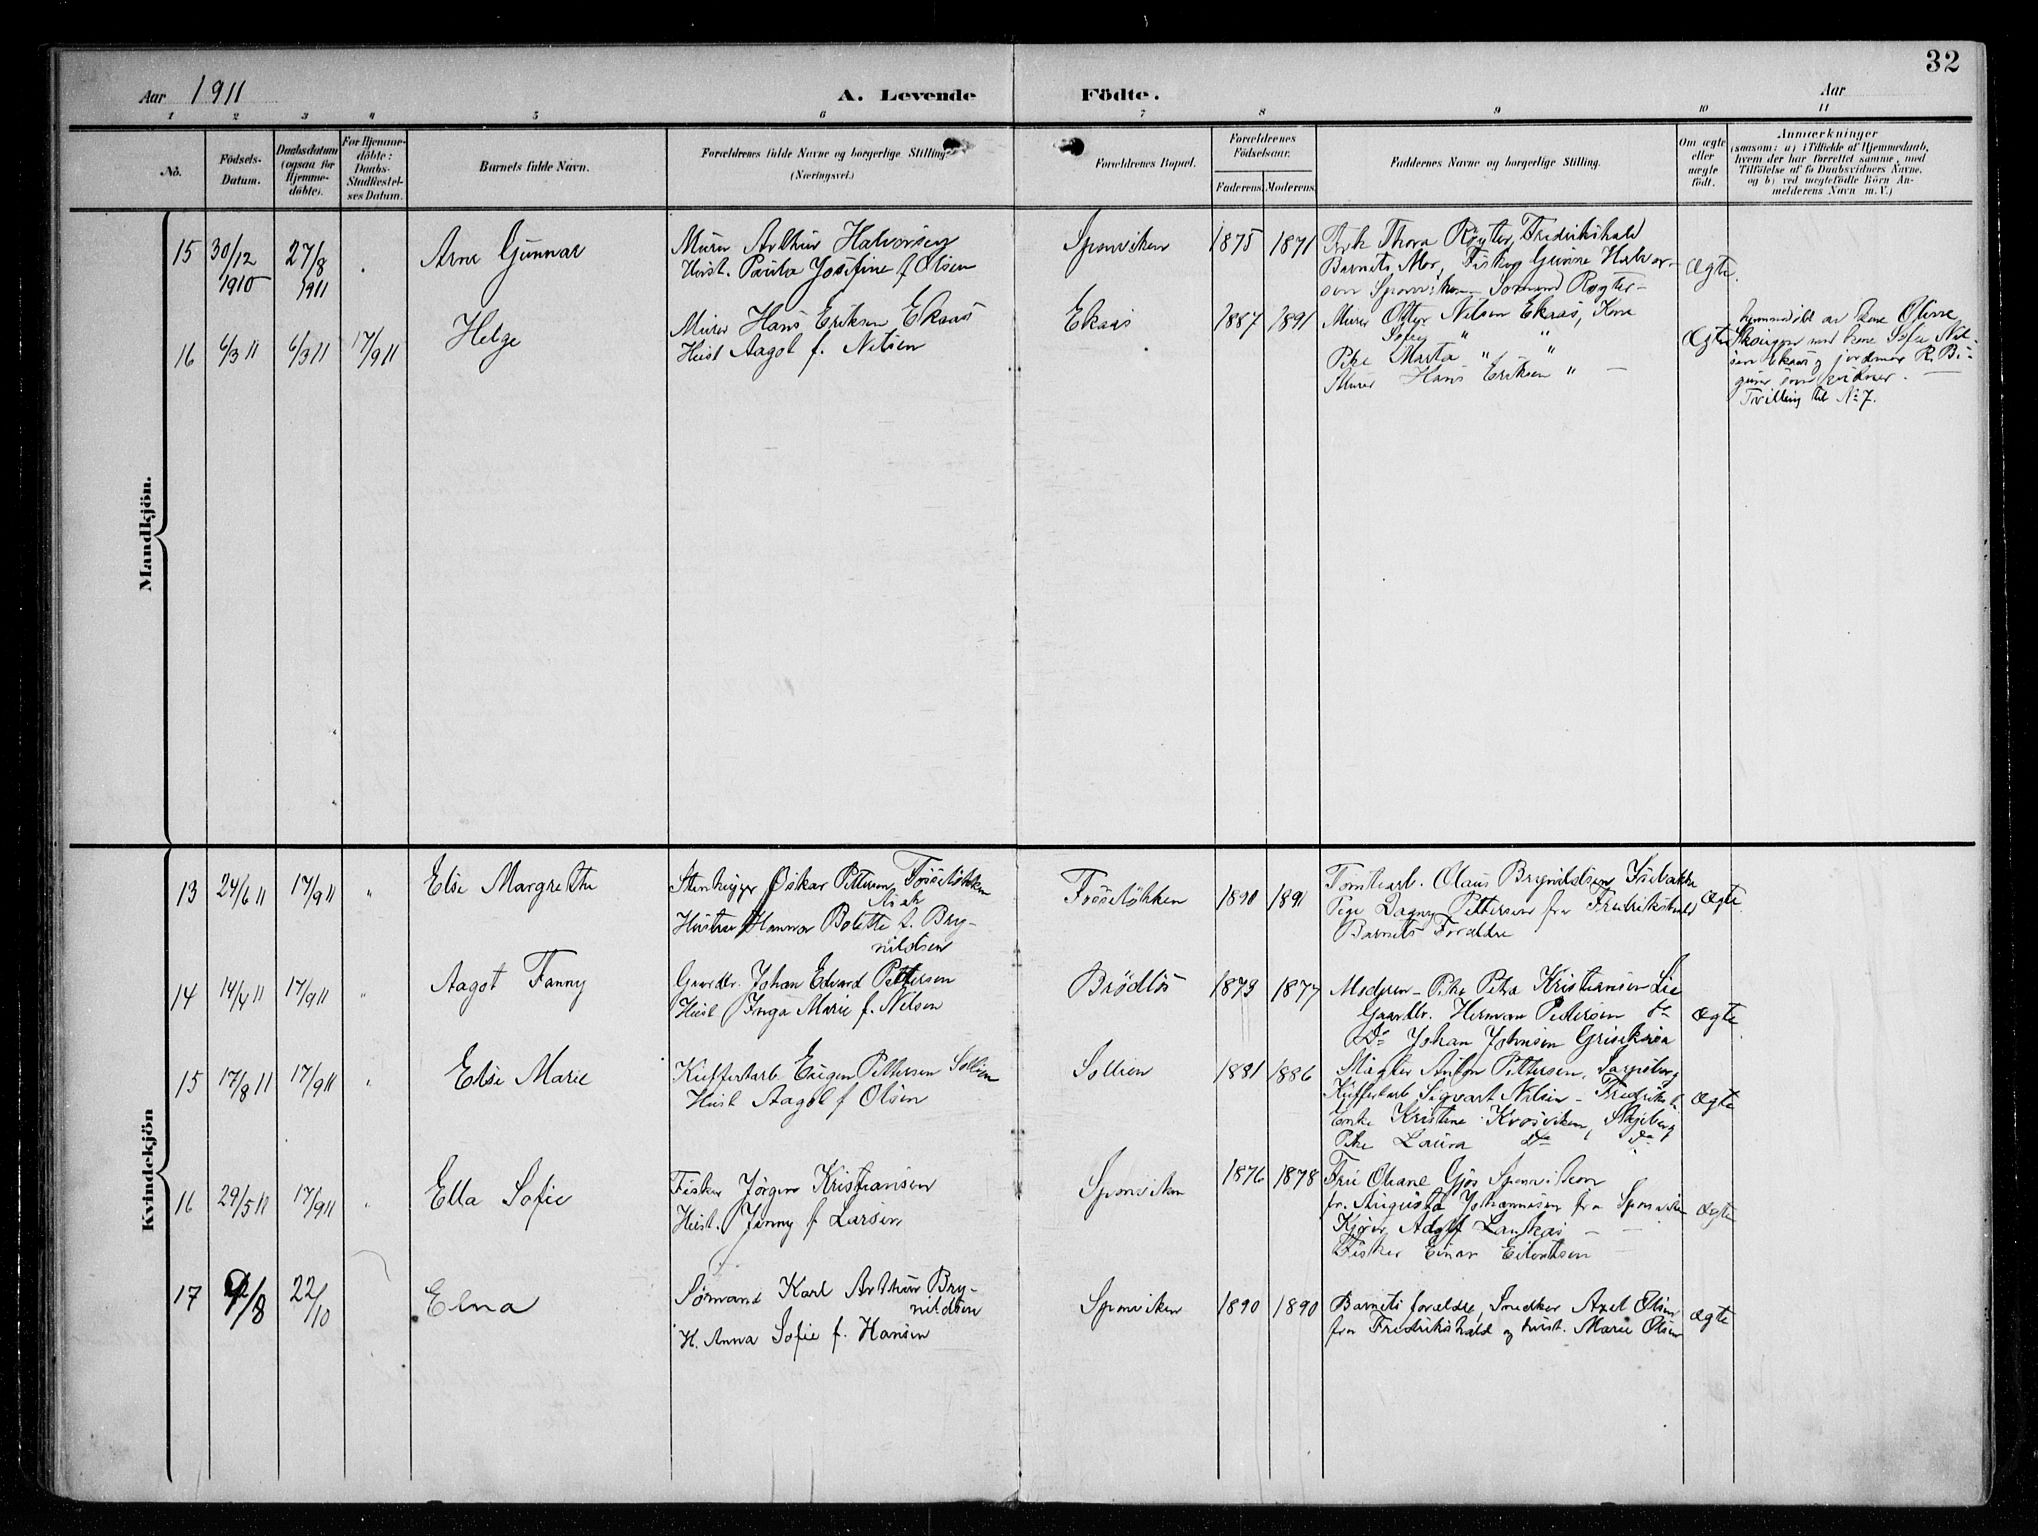 32
Aar 1911
A. Levende Födte.
Aar
1 2 3 4 5 6 7 8 9 10 11
No.
Födsels-
Datum.
Daabsdatum
(ogsaa for
Hjemme-
döbte).
For Hjemme-
döbte:
Daabs-
Stadfæstel-
ses Datum.
Barnets fulde Navn.
Forældrenes fulde Navne og borgerlige Stilling
(Næringsvei.)
Forældrenes Bopæl.
Forældrenes
Födselsaar.
Faderens. Moderens.
Faddernes Navne og borgerlige Stilling.
Om ægte
eller
uægte
födt.
Anmærkninger
(saasom: a) i Tilfælde af Hjemmedaab,
hvem der har forrettet samme, med
Tilföielse af to Daabsvidners Navne,
og b) ved uægtefödte Börn An-
melderens Navn m. V.)
Mandkjön.
15 30/12 1910 27/8 1911 Arne Gunnar
Murer Arthur Halvorsen
Hust. Paula Josefine f Olsen
Sponviken 1875 1871
Thora Røyter, Fredrikshald
Barnets Mor, Fisker Gunne Halvor-
sen Sponviken Sømand Røyter
Ægte.
16 6/3 11 6/3 11 17/9 11 Helge
Murer Hans Eriksen Ekaas
Hust Aagot f. Nilsen
Ekaas 1887 1891
Murer Nilsen Ekaas, Kone
Sofie " "
Pike Marta " "
Murer Hans Eriksen " —
Ægte
hjemmedøbt av kone Oline
med kone Sofie Nil-
sen Ekaas og jordmor R. Bi-
som vidner.
Tvilling til No 7.
Kvindekjön
13 24/6 11 17/9 11 " Else Margrethe
Stenhugger Oskar Pettersen Fosseløkken
Hustru Hanna Bolette f. Bry-
nildsen
Fosseløkken 1890 1891
Tomtearb. Olaus Brynildsen Isebakke
Pige Dagny Pettersen fra Fredrikshald
Barnets Forældre
Ægte.
14 14/4 11 17/9 11 " Aagot Fanny
Gaardbr. Johan Edvard Pettersen
Hust Inga Marie f. Nilsen
Brødløs 1879 1877
Modren - Pike Petra Kristiansen Lie
Gaardbr. Herman Pettersen do
Do Johan Johnsen
Ægte
15 17/8 11 17/9 11 " Else Marie
Kuffertarb Eugen Pettersen Sollien
Hust Aagot f Olsen
Sollien 1881 1886
Anton Pettersen, Sarpsborg
Kuffertarb Sigvart Nilsen - Fredriksh
Enke Kristine Krosviken, Skjeberg
Pike Laura do do
Ægte
16 29/5 11 17/9 11 " Ella Sofie
Fisker Jørgen Kristiansen
Hust. Jenny f Larsen
Sponviken 1876 1878
Fru Oliane Gjøs Sponviken
fr. Augusta Johannesen fra Sponviken
Adolf —
Fisker Einar Eilertsen —
Ægte
17 9/8 22/10 Elna
Sømand Karl Arthur Bry-
nildsen
H. Anna Sofie f. Hansen
Sponviken 1890 1890
Barnets forældre, Snedker Axel Olsen
fra Fredrikshald og hust. Marie Olsen
Ægte